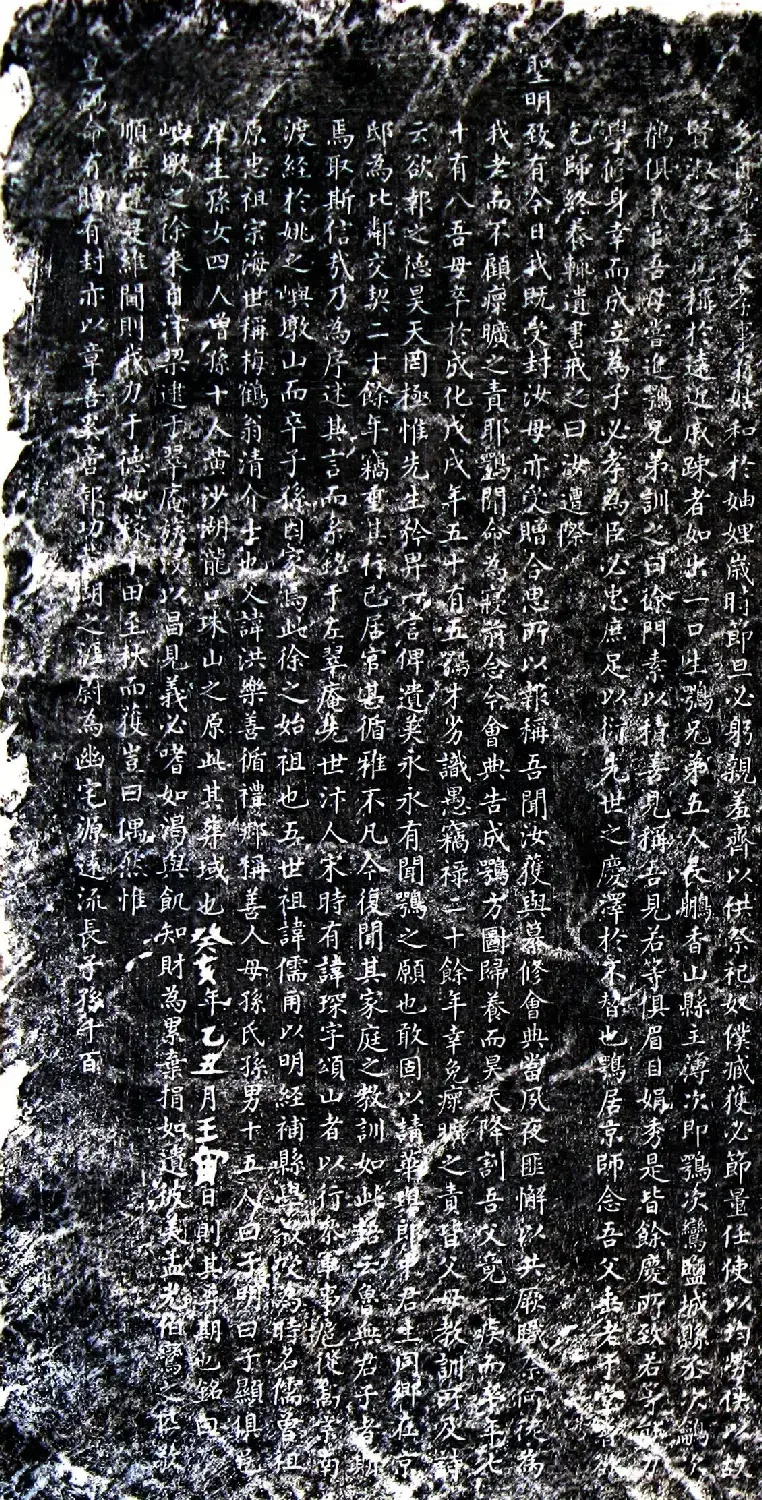 吾父奉事舅姑和於妯娌歲時節旦必躬親羞齊以供祭祀奴僕臧獲必節量任使以均勞佚以故
賢淑之稱於遠近戚疎者如出一口生鶚兄弟五人長鵬香山縣主簿次即鶚次鸞鹽城縣丞次鶴次
鵠俱義官吾母嘗進鶚兄弟訓之曰徐門素以積善見稱吾見若等俱眉目娟秀是皆餘慶所致若等
學修身幸而成立為子必孝為臣必忠庶足以衍先世之慶澤於不替也鶚居京師念吾父垂老
乞歸終養輒遺書戒之曰汝遭際
聖明致有今日我既受封汝母亦受贈合思所以報稱吾聞汝獲與纂修會典當夙夜匪懈以共厥職奈何徒為
我老而不顧瘝曠之責耶鶚聞命為戚前念今會典告成鶚方圖歸養而昊天降割吾父竟一疾而卒年七
十有八吾母卒於成化戊戌年五十有五鶚才劣識愚竊祿二十餘年幸免瘝曠之責皆父母教訓所及詩
云欲報之德昊天罔極惟先生矜畀一言俾遺美永永有聞鶚之願也敢固以請華與郎中君生同鄉在京
邸為比鄰交契二十餘年竊重其行己居官甚循雅不凡今復聞其家庭之教訓如此語云魯無君子者斯
焉取斯信哉乃為序述其言而系銘于左翠庵先世汴人宋時有諱琛字頌山者以行參軍事扈從高宗南
渡經於姚之嶼墩山而卒子孫因家焉此徐之始祖也五世祖諱儒甫以明經補縣學教授為時名儒曾祖
原忠祖宗海世稱梅鶴翁清介士也父諱洪樂善循禮鄉稱善人母孫氏孫男十五人曰子明曰子顯俱邑
庠生孫女四人曾孫十人黃沙湖龍口珠山之原此其葬域也癸亥年乙丑月壬寅日則其葬期也銘曰
嶼墩之徐來自汴梁逮于翠庵族以昌見義必嗜如渴與飢知財為累棄捐如遺彼美孟光伯鸞之匹敬
順無違是維閫則我力于德如稼于田至秋而穫豈曰偶然惟
皇錫命有贈有封亦以章善奚啻報功湖之涯蔚為幽宅源遠流長子孫千百